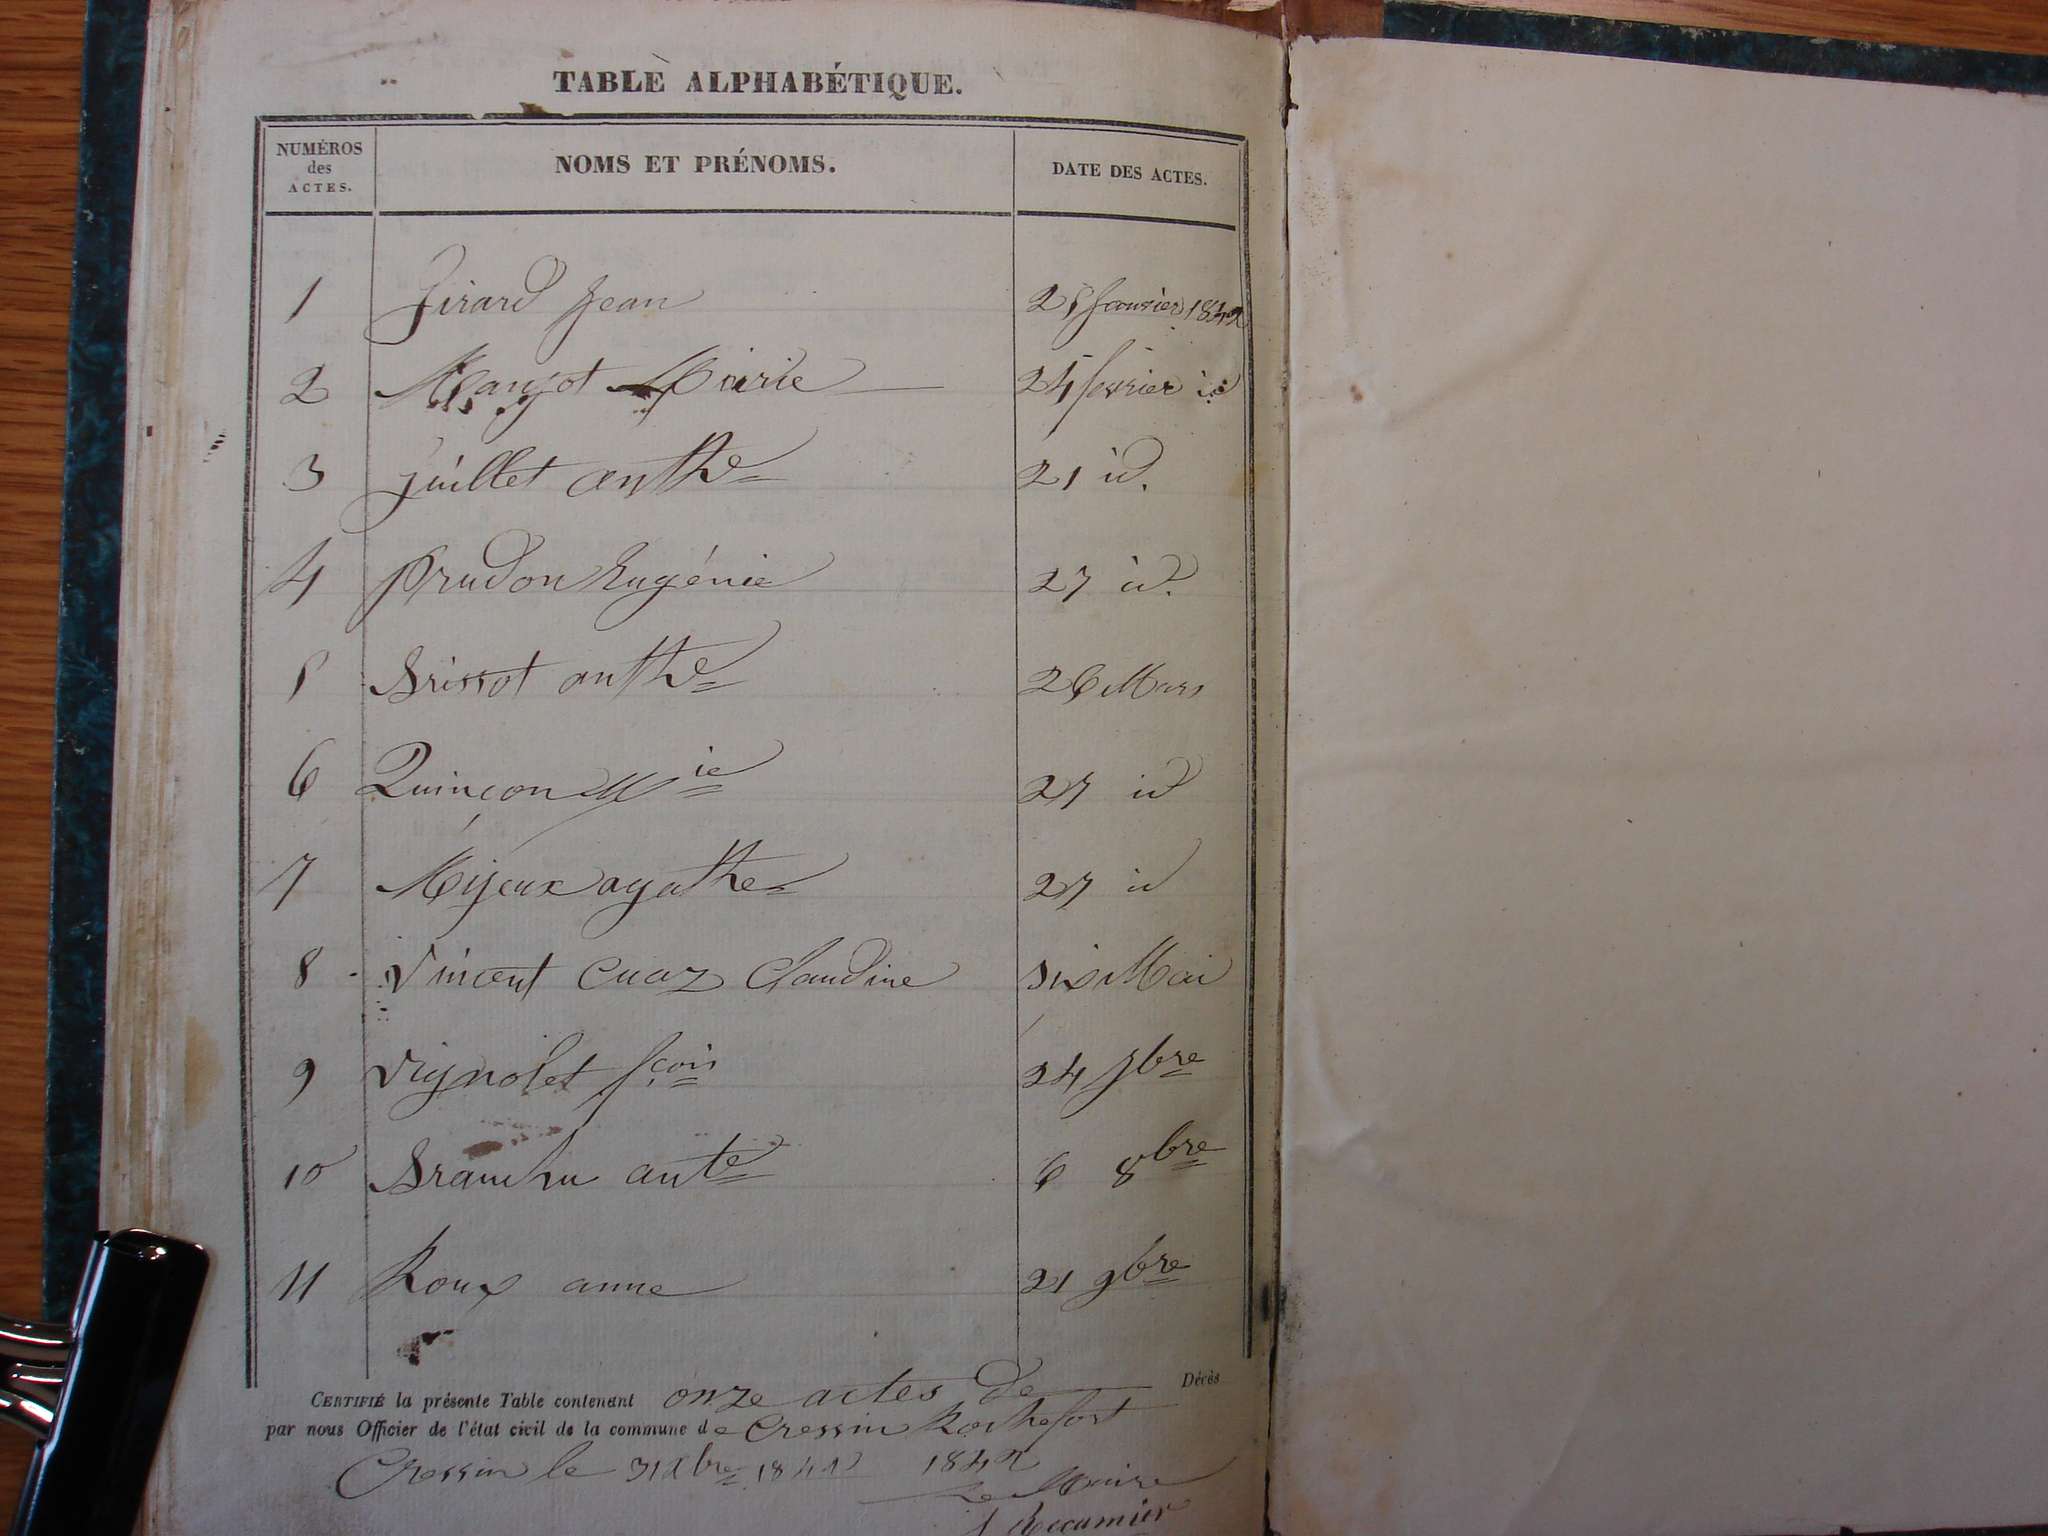 TABLE ALPHABÉTIQUE.
NUMÉROS des ACTES. NOMS ET PRÉNOMS. DATE DES ACTES.
1 Girard Jean 25 janvier 1842
2 Mangot Marie 24 février id
3 juillet anthe 21 id.
4 prudon Eugénie 27 id.
5 Brissot anthe 26 Mars
6 Quinçon Mie 27 id
7 Mijeux agathe 27 id
8 Vincent Cuaz Claudine six Mai
9 Vignolet fçois 24 7bre
10 Branchu ante 6 8bre
11 Roux anne 21 9bre
CERTIFIÉ la présente Table contenant onze actes de Décès
par nous Officier de l'état civil de la commune de Cressin Rochefort
Cressin le 31 Xbre 1842 1842
Le Maire
Recamier